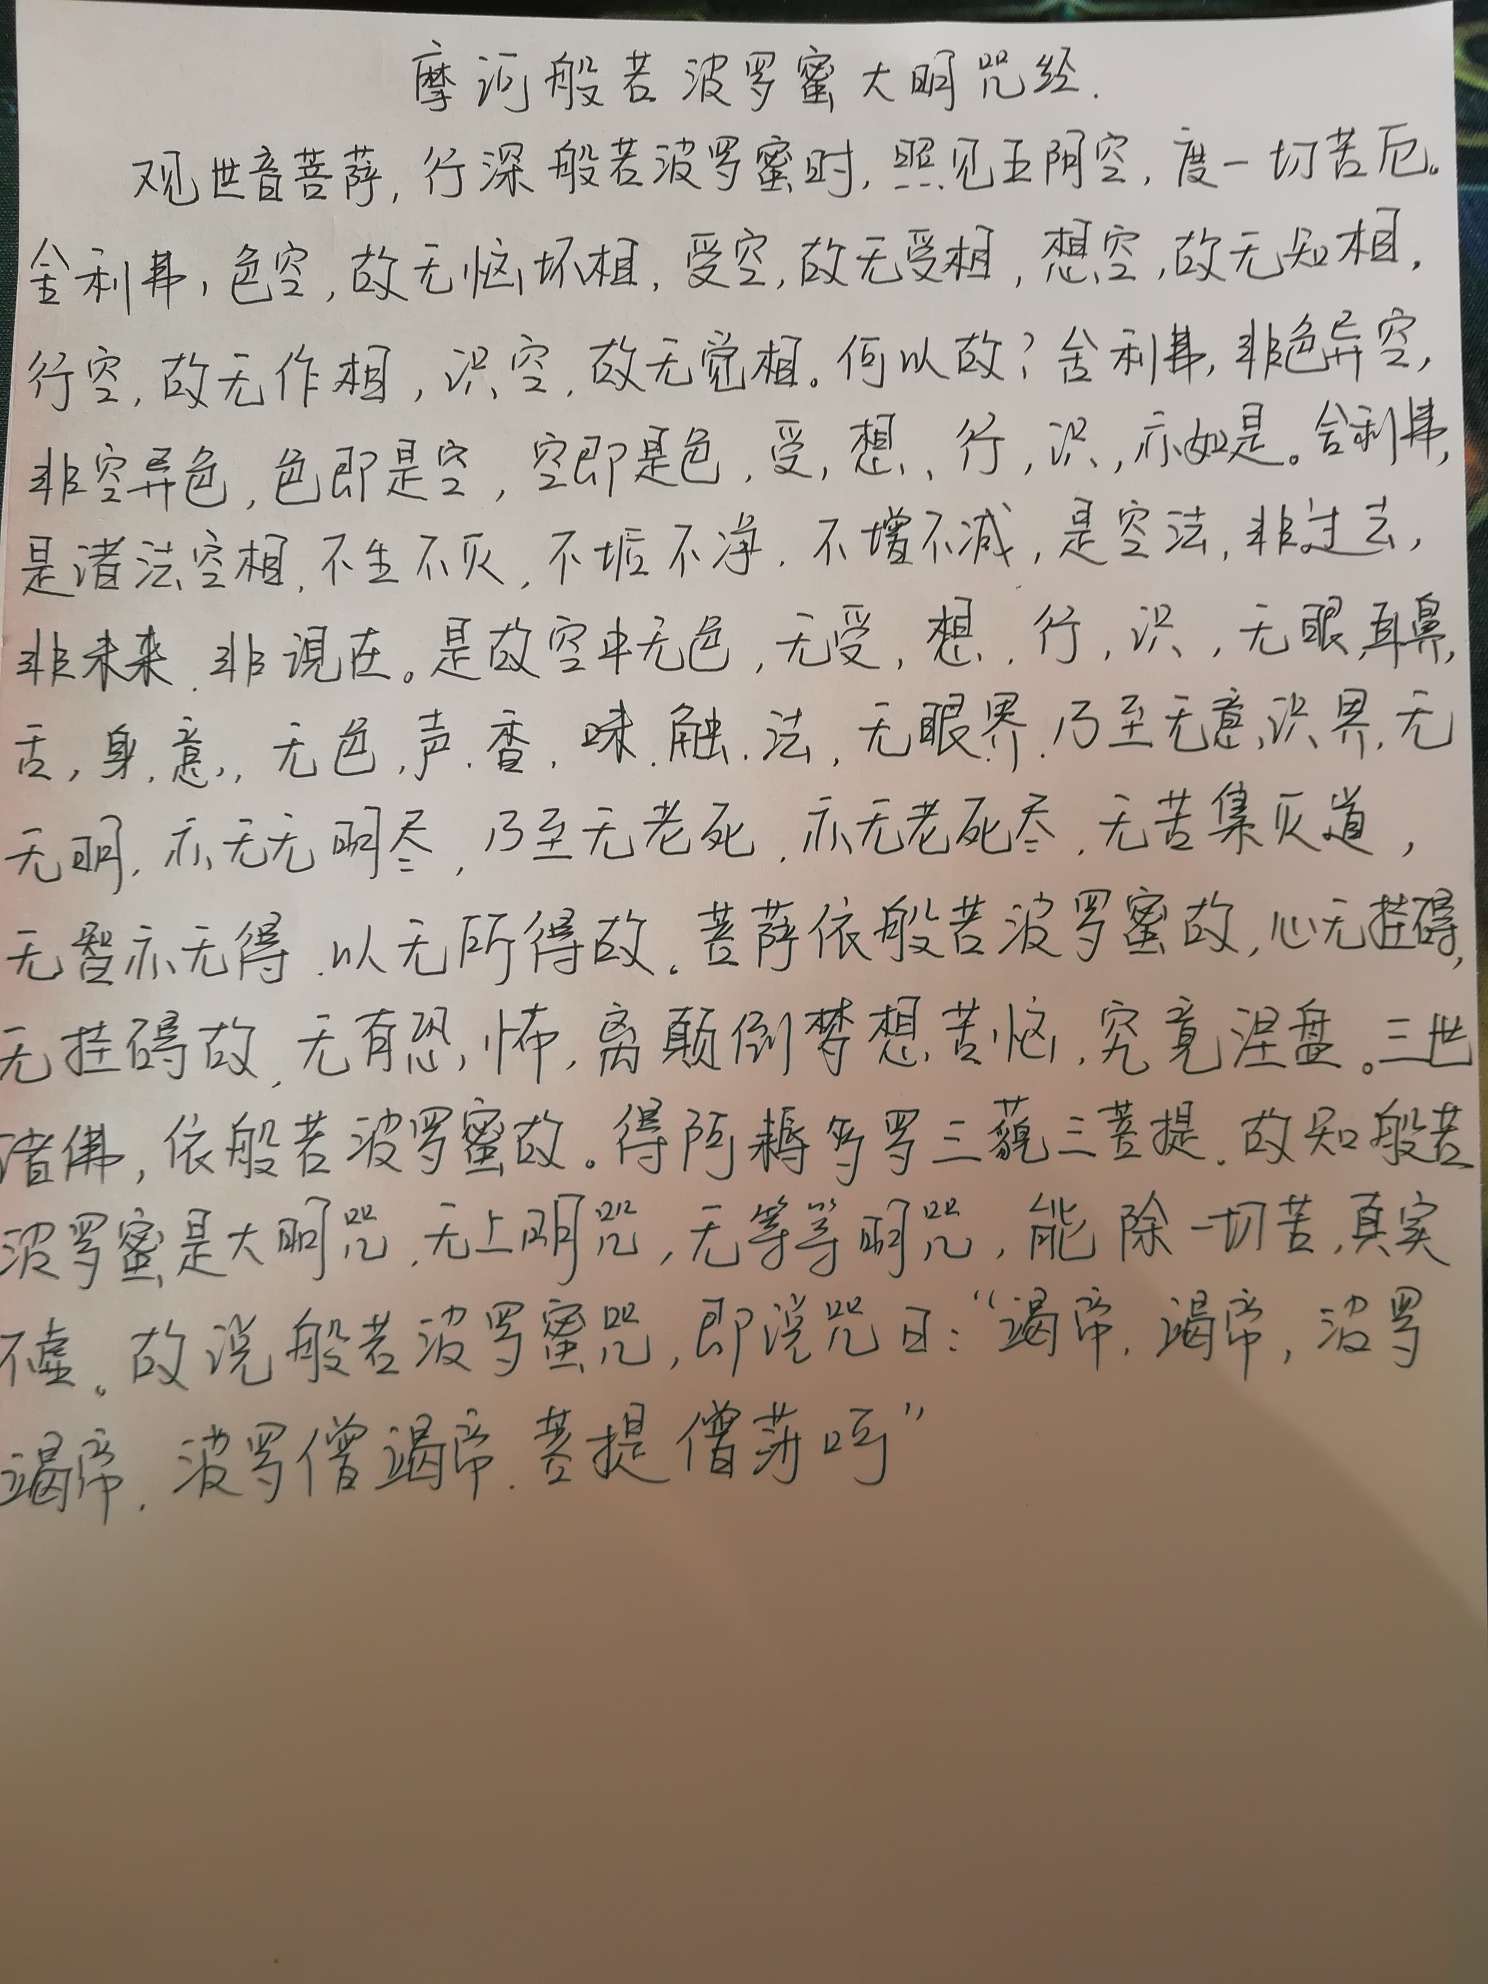 摩诃般若波罗蜜大明咒经.
观世音菩萨，行深般若波罗蜜时，照见五阴空，度一切苦厄。
舍利弗，色空，故无恼坏相，受空，故无受相，想空，故无知相，
行空，故无作相，识空，故无觉相。何以故？舍利弗，非色异空，
非空异色，色即是空，空即是色，受，想、行，识，亦如是。舍利弗，
是诸法空相，不生不灭，不垢不净，不增不减，是空法，非过去，
非未来，非现在。是故空中无色，无受，想，行，识，无眼，耳，鼻，
舌，身，意，无色，声，香，味，触，法，无眼界，乃至无意识界，无
无明，亦无无明尽，乃至无老死，亦无老死尽，无苦集灭道，
无智亦无得，以无所得故。菩萨依般若波罗蜜故，心无挂碍，
无挂碍故，无有恐怖，离颠倒梦想苦恼，究竟涅盘。三世
诸佛，依般若波罗蜜故。得阿耨多罗三藐三菩提，故知般若
波罗蜜是大明咒，无上明咒，无等等明咒，能除一切苦，真实
不虚。故说般若波罗蜜咒，即说咒曰：“竭帝，竭帝，波罗
竭帝，波罗僧竭帝，菩提僧莎呵”